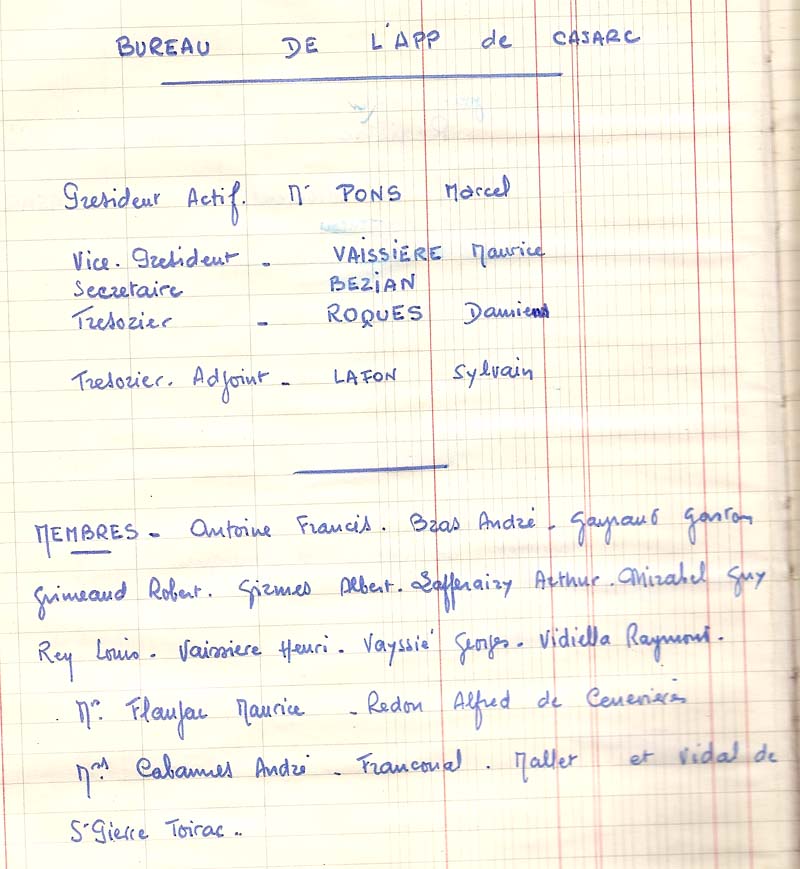 BUREAU DE L'APP de CAJARC
President Actif. Mr PONS Marcel
Vice. President - VAISSIERE Maurice
Secretaire BEZIAN
Tresorier - ROQUES Damiens
Tresorier. Adjoint - LAFON Sylvain
MEMBRES - Antoine Francis. Bras André - Gayraud Gaston
Grimeaud Robert. Girmes Albert. Laffenairy Arthur. Mirabel Guy
Rey Louis. Vaissiere Henri. Vayssié Georges. Vidiella Raymond.
Mr. Flaujac Maurice - Redon Alfred de Cenevieres
Mrs Cabannes André - Francoual. Mallet et Vidal de
St Pierre Toirac..